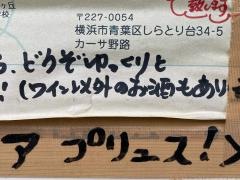 〒227-0054
横浜市青葉区しらとり台34-5
カーサ野路
どうぞゆっくりと
!(ワイン以外のお酒もあり
ア プリュス!>